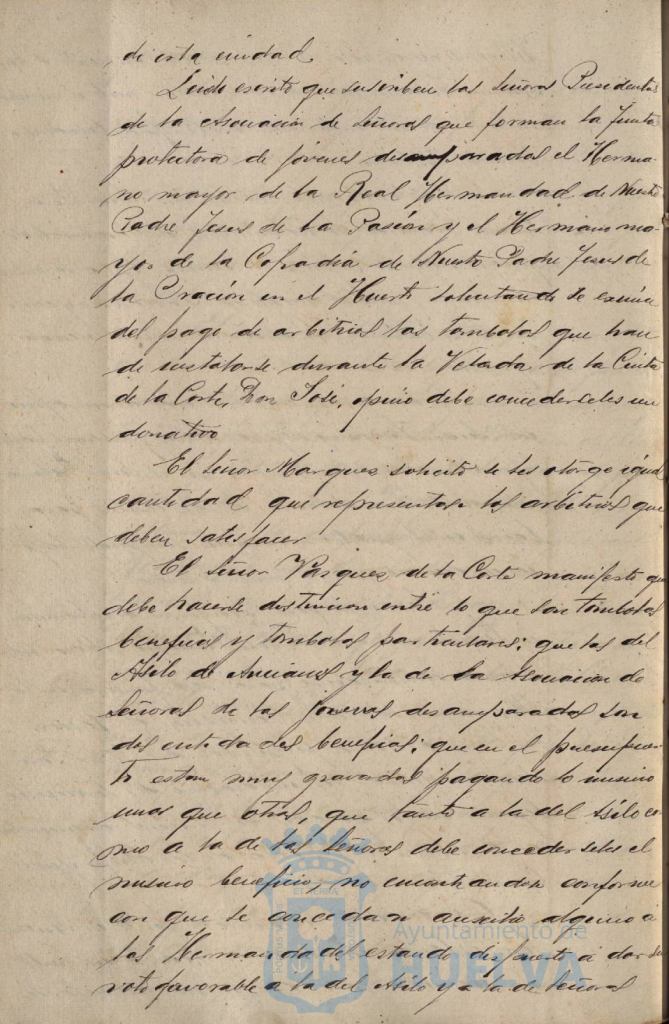 de esta ciudad.
Leido escrito que suscriben las Señoras Presidentas
de la Asociación de Señoras que forman la Junta
protectora de jóvenes desamparadas el Herma-
no mayor de la Real Hermandad de Nuestro
Padre Jesus de la Pasión y el Hermano ma-
yor de la Cofradía de Nuestro Padre Jesus de
la Oración en el Huerto solicitando se exima
del pago de arbitrios las tombolas que han
de instalarse durante la Velada de la Cinta
de la Corte, Don José, opinó debe concederseles un
donativo
El Señor Marquez solicitó se les otorge igual
cantidad que representan los arbitrios que
deben satisfacer
El Señor Vazquez de la Corte manifestó que
debe hacerse distincion entre lo que son tombolas
beneficas y tombolas particulares; que las del
Asilo de Ancianos y la de la Asociación de
Señoras de las jovenes desamparadas son
dos entidades beneficas; que en el presupues-
to estan muy gravadas pagando lo mismo
unas que otras, que tanto a la del Asilo co-
mo a la de las Señoras debe concederseles el
mismo beneficio, no encontrandose conforme
con que se concedan auxilio alguno á
las Hermandades estando dispuesto á dar su
voto favorable a la del Asilo y a la de Señoras
Ayuntamiento de
HUELVA